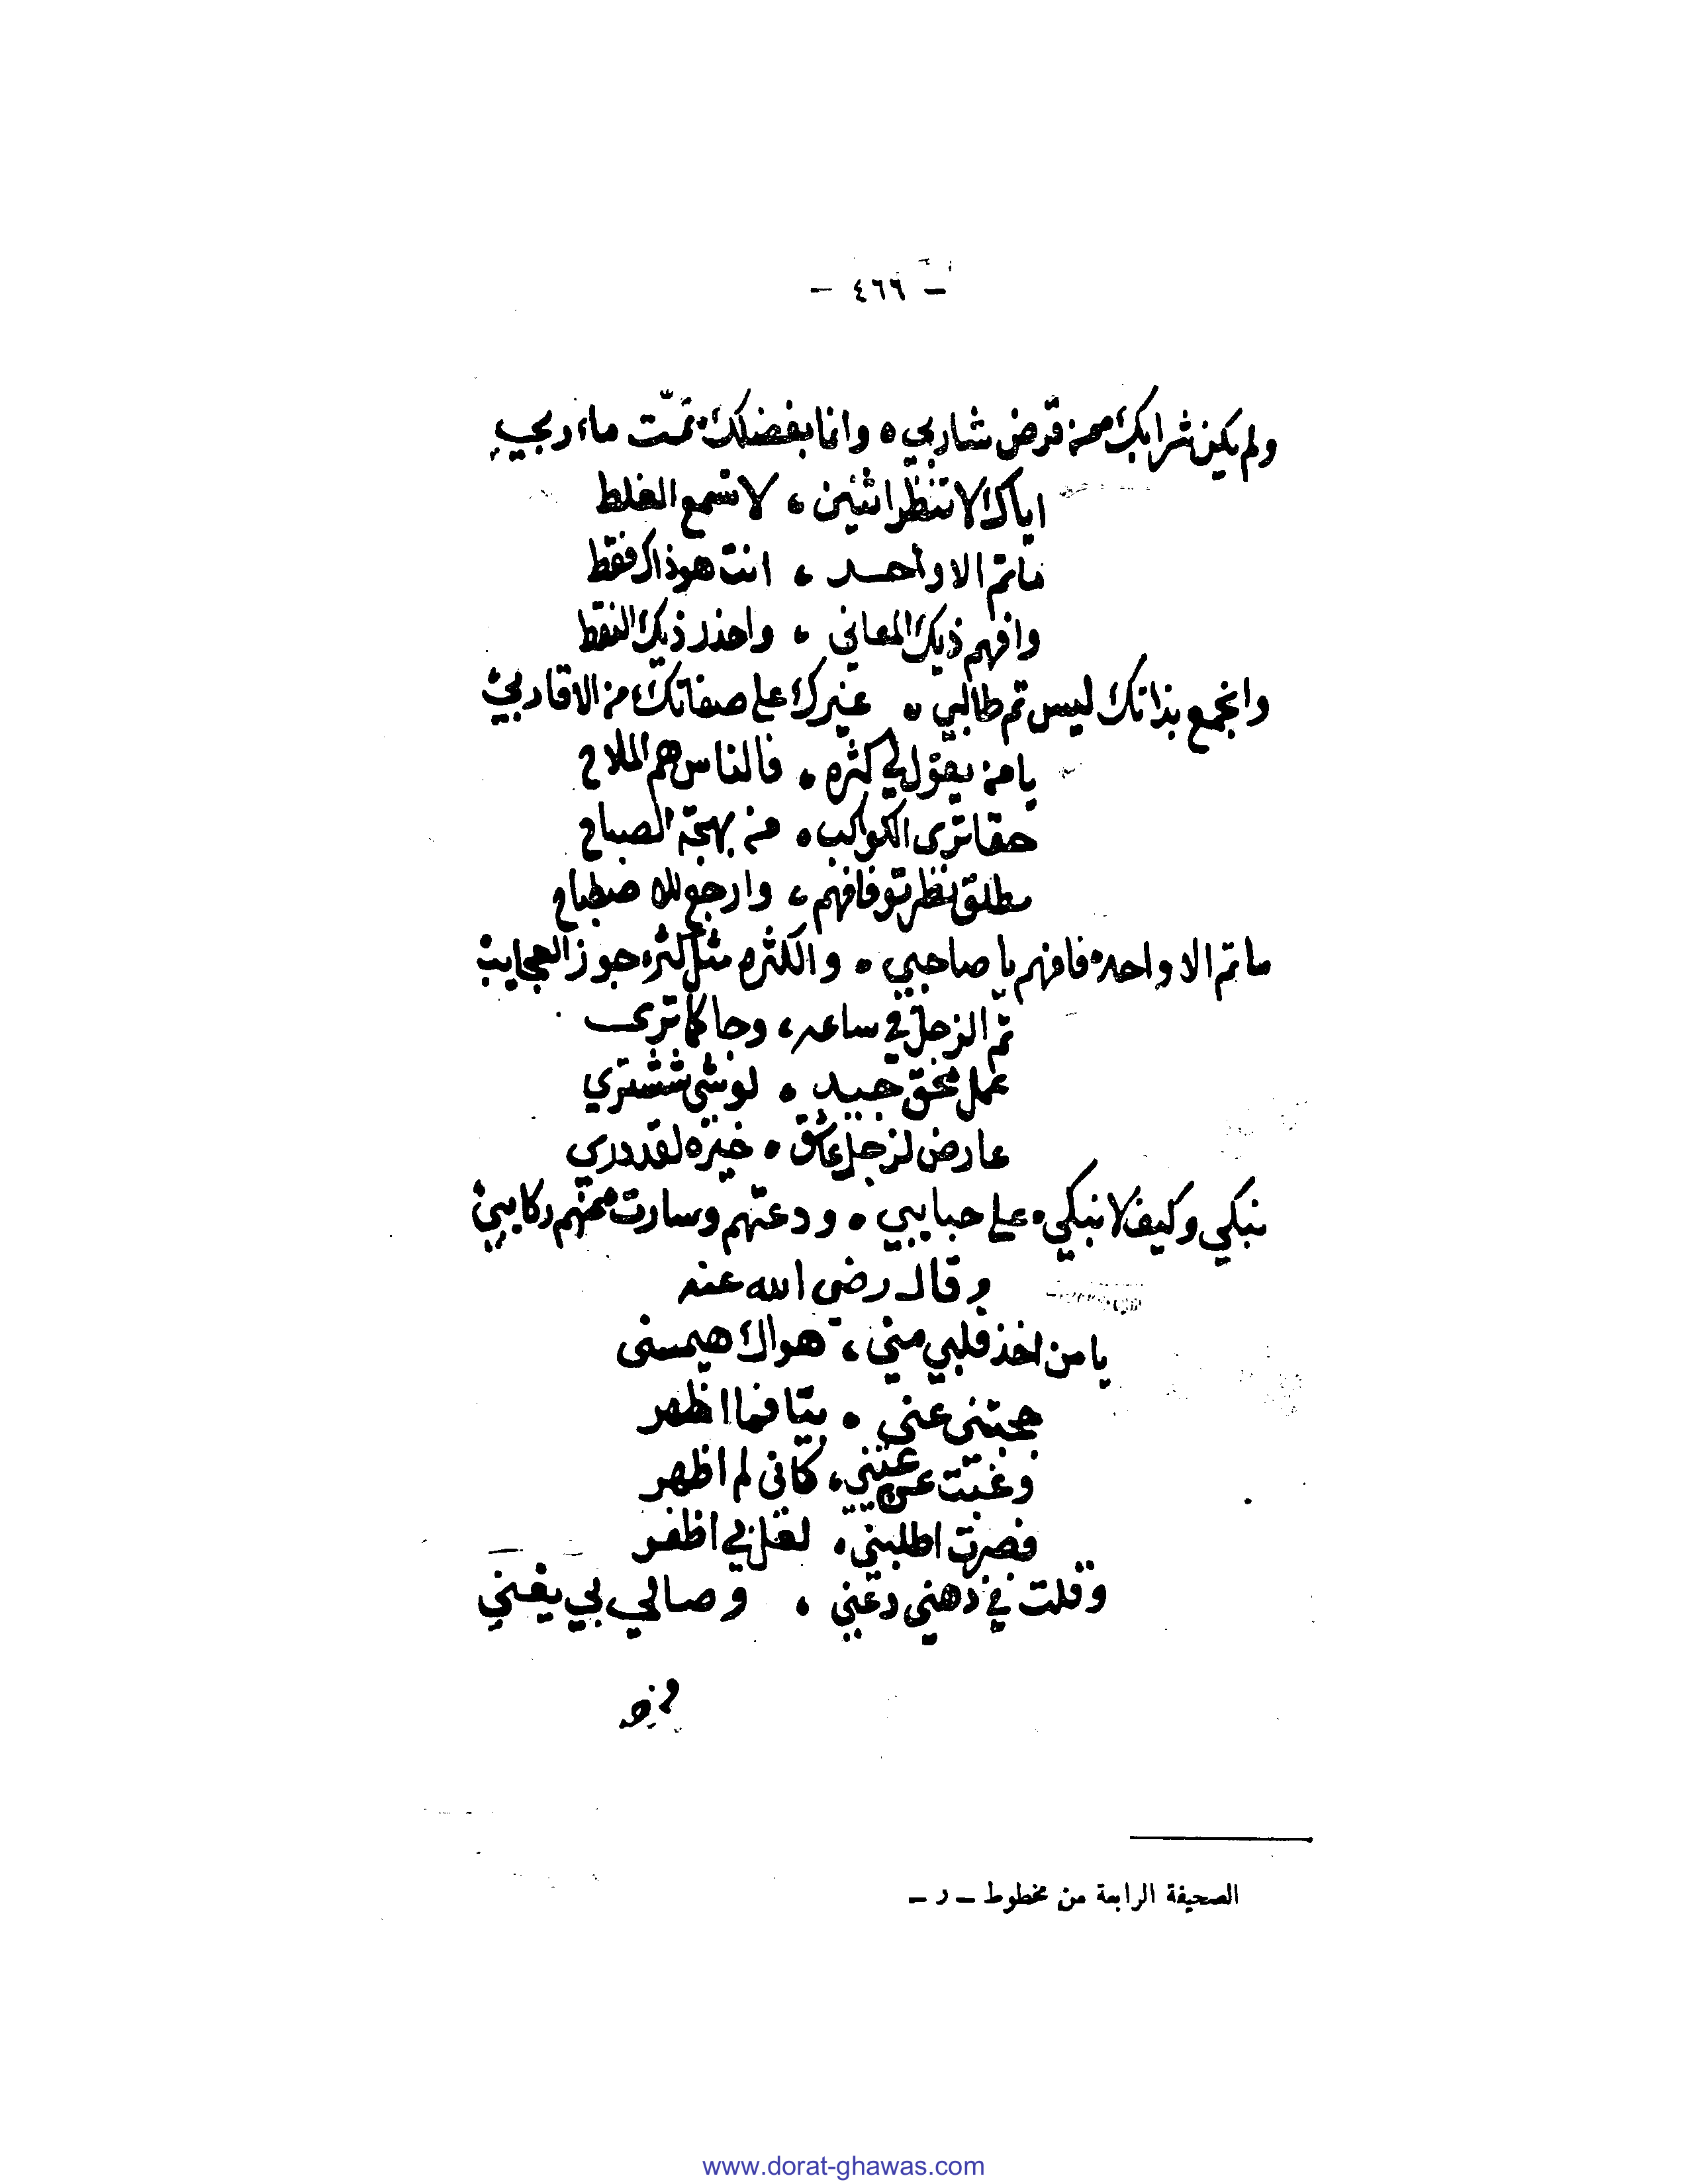 - ٤٦٦ -
ولم يكن شرابك من قرض شاربي ، وانا بفضلك تمّت مآربي
اياك لا تنظر اثنين ، لا تسمع الغلط
ما ثم الا واحد ، انت هو ذاك فقط
وافهم ذيك المعاني ، واحذر ذيك النقط
وانجمع بذاتك ليس ثم طالبي ، غيرك على صفاتك من الاقاربي
يا من يقول لي كثره ، فالناس هم الملاح
حقا ترى الكواكب ، من بهجة الصباح
مطلق نظر تو فافهم ، وارجع للاصطباح
ما ثم الا واحده فافهم يا صاحبي ، والكثره مثل كثره جوز العجايب
تم الزجل في ساعه ، وجا كما ترى
عمل محق جيد ، لوشي ششتري
عارض لزجل عاشق ، خيره لقد دري
نبكي وكيف لا نبكي على حبايبي ، ودعتهم وسارت عنهم ركايبي
وقال رضى الله عنه
يا من اخذ قلبي مني ، هواك هيمنى
حجبتنى عنى ، بيتا فما اظهر
وغبت عن عيني ، كانى لم اظهر
فصرت اطلبني ، لعل بي اظفر
وقلت في ذهني دعني ، وصالي بي يغني
الصحيفة الرابعة من مخطوط - ر -
www.dorat-ghawas.com